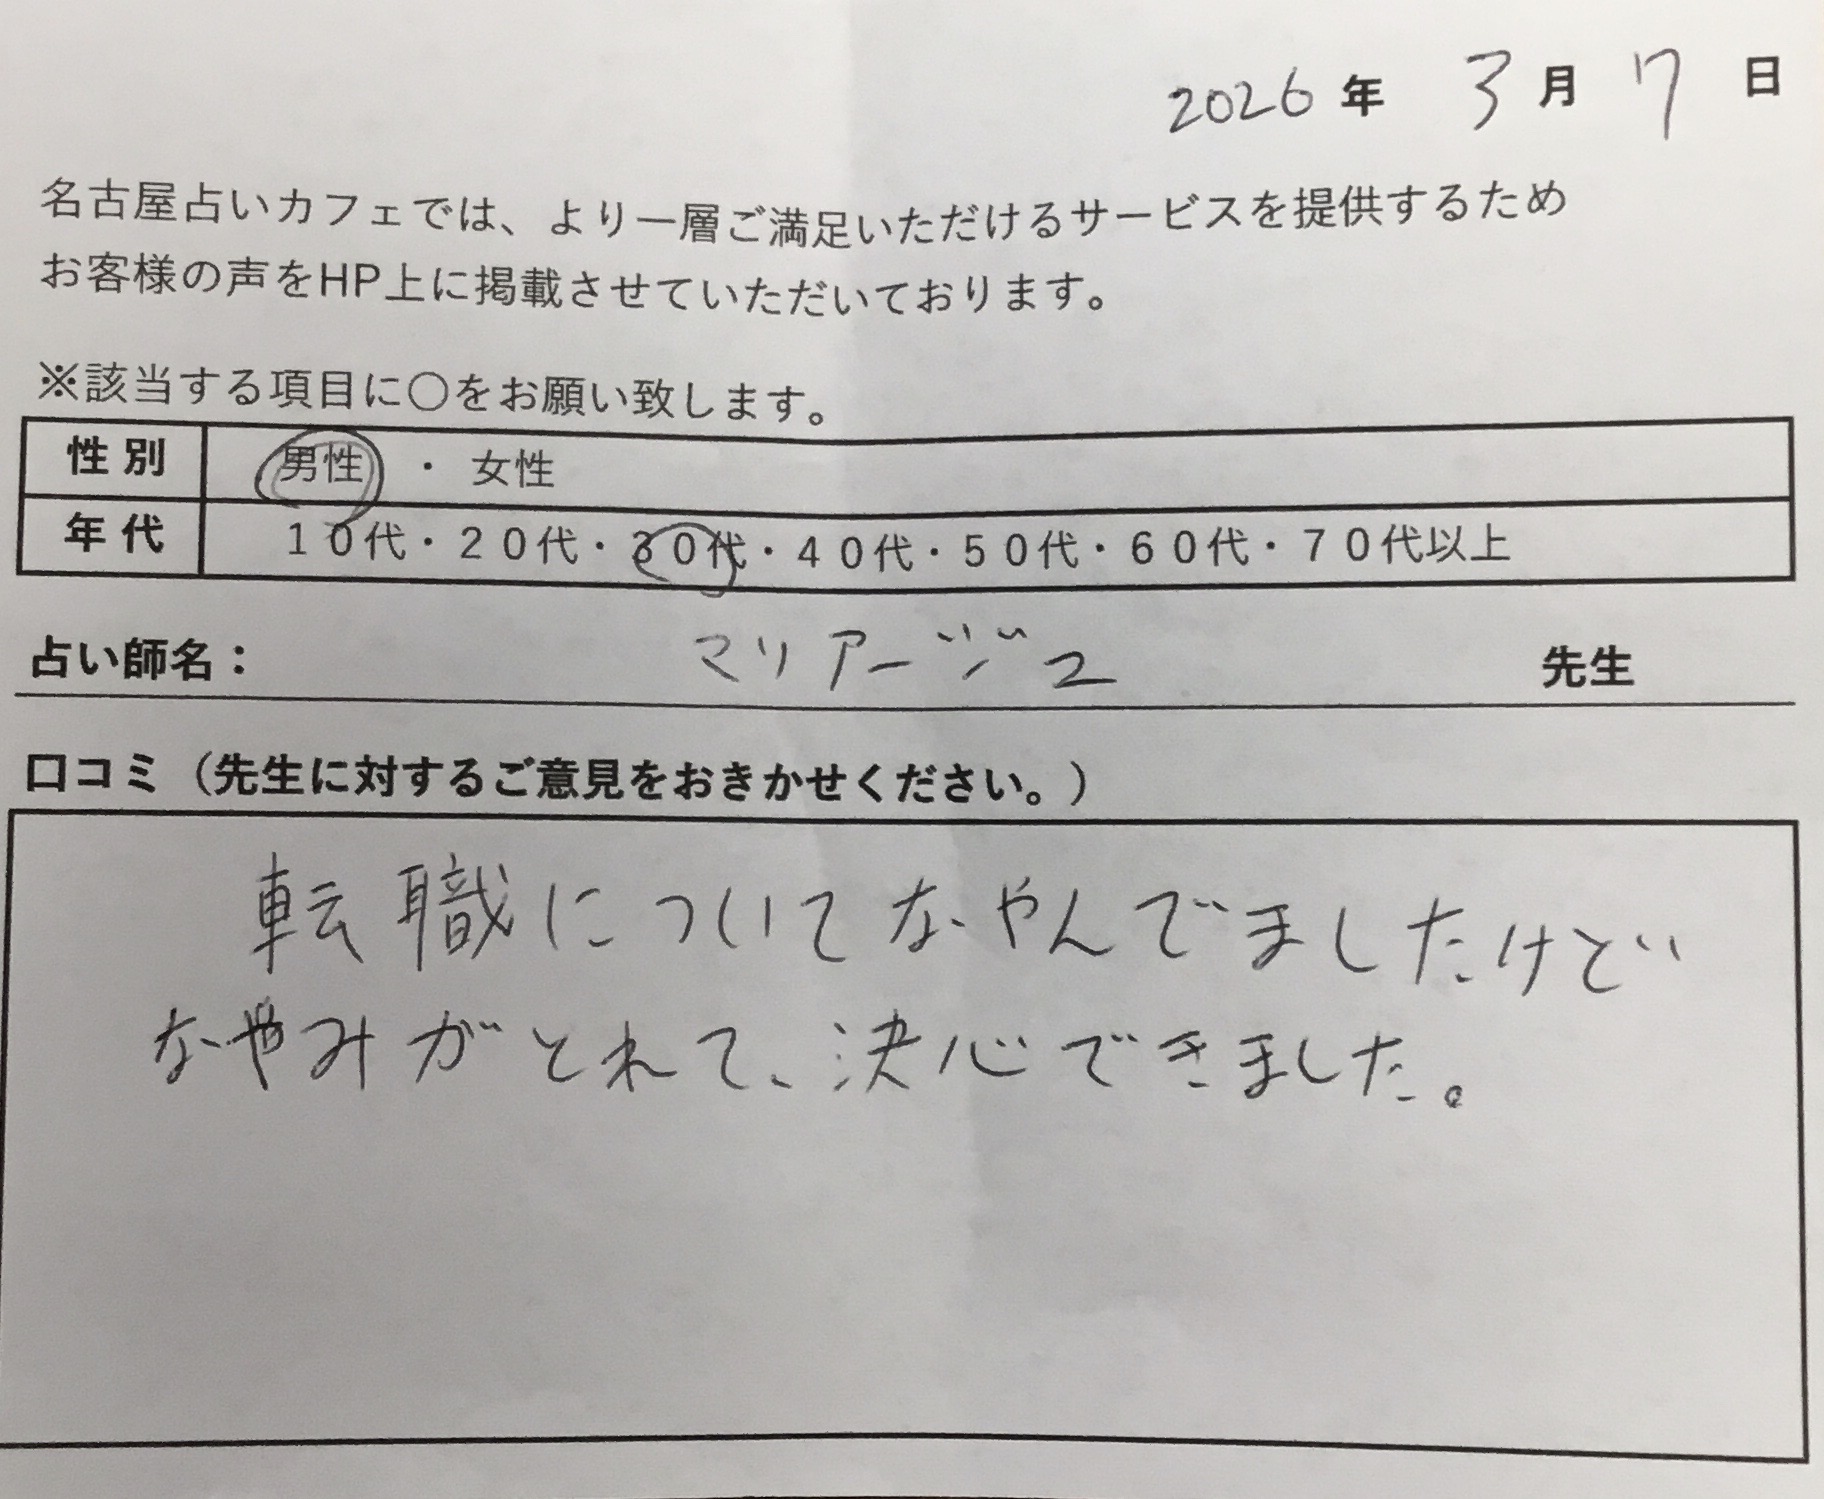 2026 年 3 月 7 日
名古屋占いカフェでは、より一層ご満足いただけるサービスを提供するため
お客様の声をHP上に掲載させていただいております。
※該当する項目に〇をお願い致します。
性別 男性 ・ 女性
年代 10代・20代・30代・40代・50代・60代・70代以上
占い師名： マリアージュ 先生
口コミ（先生に対するご意見をおきかせください。）
転職についてなやんでましたけど
なやみがとれて、決心できました。